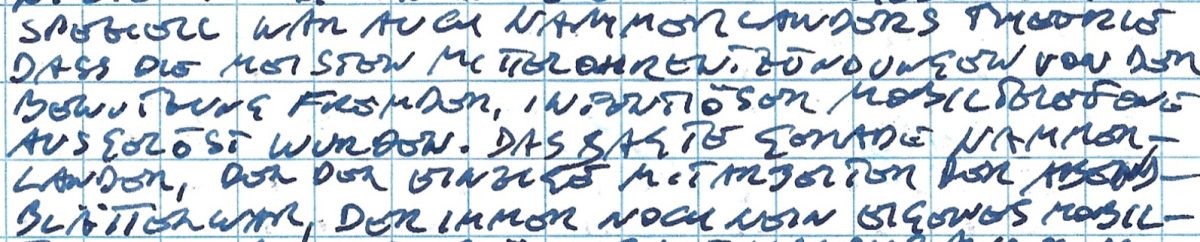 SPEZIELL WAR AUCH NAMMERLANDERS THEORIE
DASS DIE MEISTEN MITTELOHRENTZÜNDUNGEN VON DER
BENUTZUNG FREMDER, INFEKTIÖSER MOBILTELEFONE
AUSGELÖST WURDEN. DAS SAGTE GERADE NAMMER-
LANDER, DER DER EINZIGE MITARBEITER DER ABEND-
BLÄTTER WAR, DER IMMER NOCH KEIN EIGENES MOBIL-